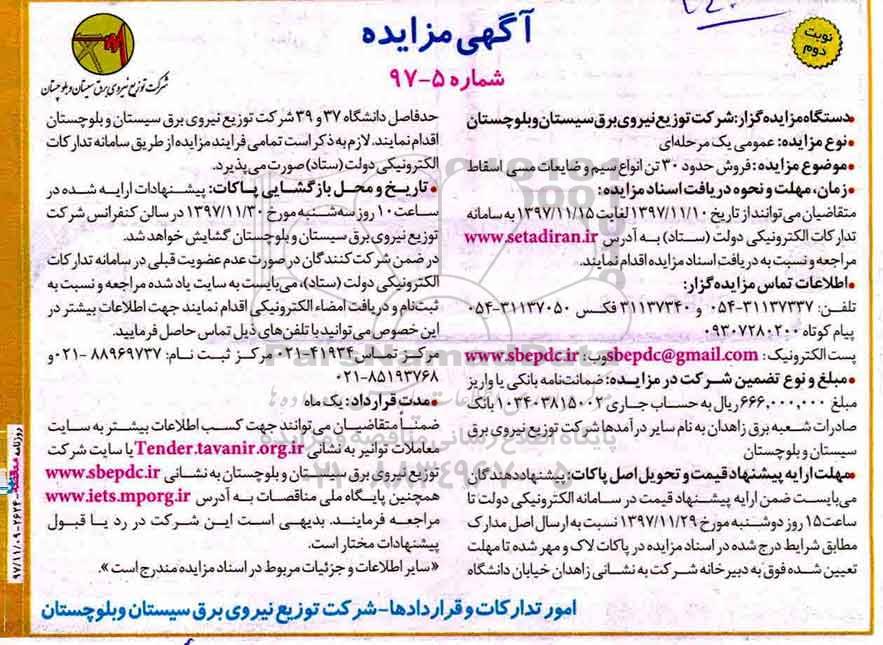 آگهی مزایده
شماره ۵-۹۷
نوبت
دوم
شرکت توزیع نیروی برق سیستان و بلوچستان
•دستگاه مزایده گزار: شرکت توزیع نیروی برق سیستان و بلوچستان
•نوع مزایده: عمومی یک مرحله‌ای
•موضوع مزایده: فروش حدود ۳۰ تن انواع سیم و ضایعات مسی اسقاط
•زمان، مهلت و نحوه دریافت اسناد مزایده:
متقاضیان می‌توانند از تاریخ ۱۳۹۷/۱۱/۱۰ لغایت ۱۳۹۷/۱۱/۱۵ به سامانه
تدارکات الکترونیکی دولت (ستاد) به آدرس www.setadiran.ir
مراجعه و نسبت به دریافت اسناد مزایده اقدام نمایند.
•اطلاعات تماس مزایده گزار:
تلفن: ۳۱۱۳۷۳۳۷-۰۵۴ و ۳۱۱۳۷۳۴۰ فکس ۳۱۱۳۷۰۵۰-۰۵۴
پیام کوتاه ۰۹۳۰۷۲۸۰۲۰۰
پست الکترونیک: sbepdc@gmail.com وب: www.sbepdc.ir
•مبلغ و نوع تضمین شرکت در مزایده: ضمانت‌نامه بانکی یا واریز
مبلغ ۶۶۶,۰۰۰,۰۰۰ ریال به حساب جاری ۰۱۰۳۴۰۳۸۱۵۰۰۲ بانک
صادرات شعبه برق زاهدان به نام سایر درآمدها شرکت توزیع نیروی برق
سیستان و بلوچستان
•مهلت ارایه پیشنهاد قیمت و تحویل اصل پاکات: پیشنهاددهندگان
می‌بایست ضمن ارایه پیشنهاد قیمت در سامانه الکترونیکی دولت تا
ساعت ۱۵ روز دوشنبه مورخ ۱۳۹۷/۱۱/۲۹ نسبت به ارسال اصل مدارک
مطابق شرایط درج شده در اسناد مزایده در پاکات لاک و مهر شده تا مهلت
تعیین شده فوق به دبیرخانه شرکت به نشانی زاهدان خیابان دانشگاه
حدفاصل دانشگاه ۳۷ و ۳۹ شرکت توزیع نیروی برق سیستان و بلوچستان
اقدام نمایند. لازم به ذکر است تمامی فرایند مزایده از طریق سامانه تدارکات
الکترونیکی دولت (ستاد) صورت می‌پذیرد.
• تاریخ و محل بازگشایی پاکات: پیشنهادات ارایه شده در
ساعت ۱۰ روز سه‌شنبه مورخ ۱۳۹۷/۱۱/۳۰ در سالن کنفرانس شرکت
توزیع نیروی برق سیستان و بلوچستان گشایش خواهد شد.
در ضمن شرکت کنندگان در صورت عدم عضویت قبلی در سامانه تدارکات
الکترونیکی دولت (ستاد)، می‌بایست به سایت یاد شده مراجعه و نسبت به
ثبت‌نام و دریافت امضاء الکترونیکی اقدام نمایند جهت اطلاعات بیشتر در
این خصوص می‌توانید با تلفن‌های ذیل تماس حاصل فرمایید.
مرکز تماس ۴۱۹۳۴-۰۲۱ مرکز ثبت نام: ۸۸۹۶۹۷۳۷-۰۲۱ و
۸۵۱۹۳۷۶۸-۰۲۱
•مدت قرارداد: یک ماه
ضمناً متقاضیان می‌توانند جهت کسب اطلاعات بیشتر به سایت
معاملات توانیر به نشانی Tender.tavanir.org.ir یا سایت شرکت
توزیع نیروی برق سیستان و بلوچستان به نشانی www.sbepdc.ir
همچنین پایگاه ملی مناقصات به آدرس www.iets.mporg.ir
مراجعه فرمایند. بدیهی است این شرکت در رد یا قبول
پیشنهادات مختار است.
«سایر اطلاعات و جزئیات مربوط در اسناد مزایده مندرج است».
امور تدارکات و قراردادها-شرکت توزیع نیروی برق سیستان و بلوچستان
ParsNamadData
پایگاه اطلاع رسانی مناقصه و مزایده
۰۲۱-۸۸۳۴۹۶۷۰-۵
روزنامه
۹۷/۱۱/۰۹-۲۶۲۴